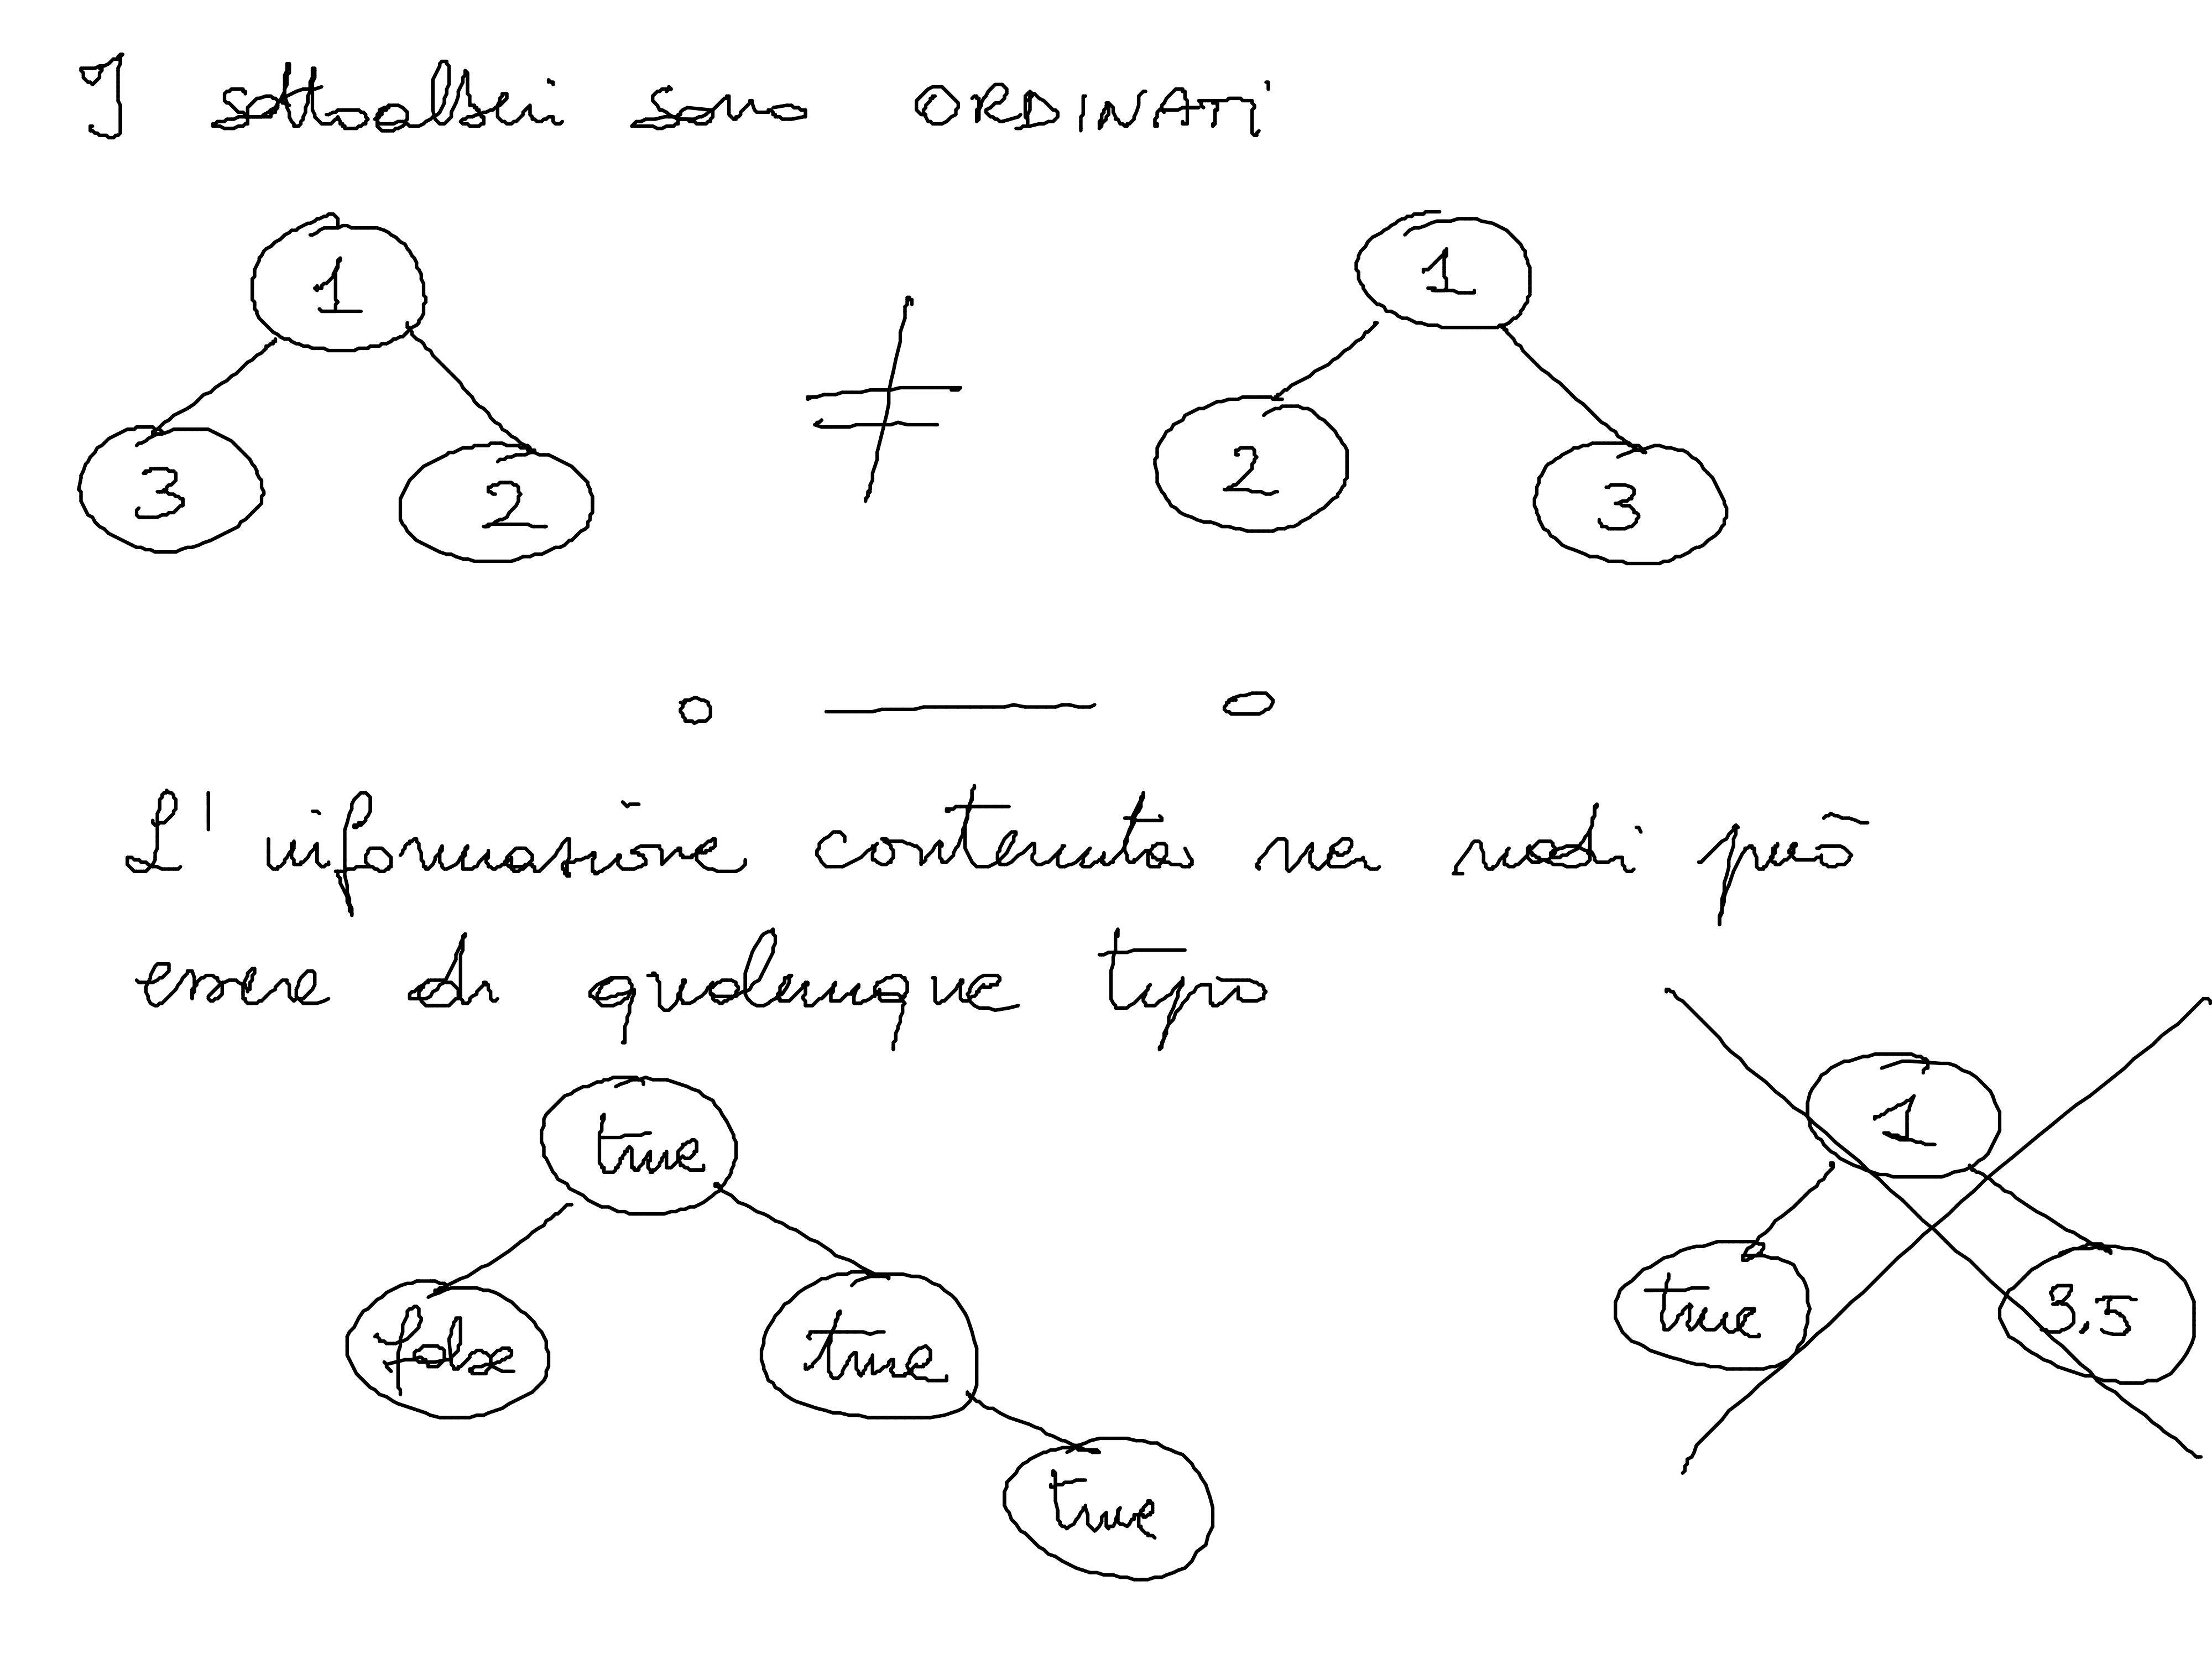 I sottoalberi sono ORDINATI
1 1
≠
3 2 2 3
L'informazione contenuta nei nodi può
essere di qualunque tipo
true 1
false true true 3.5
true